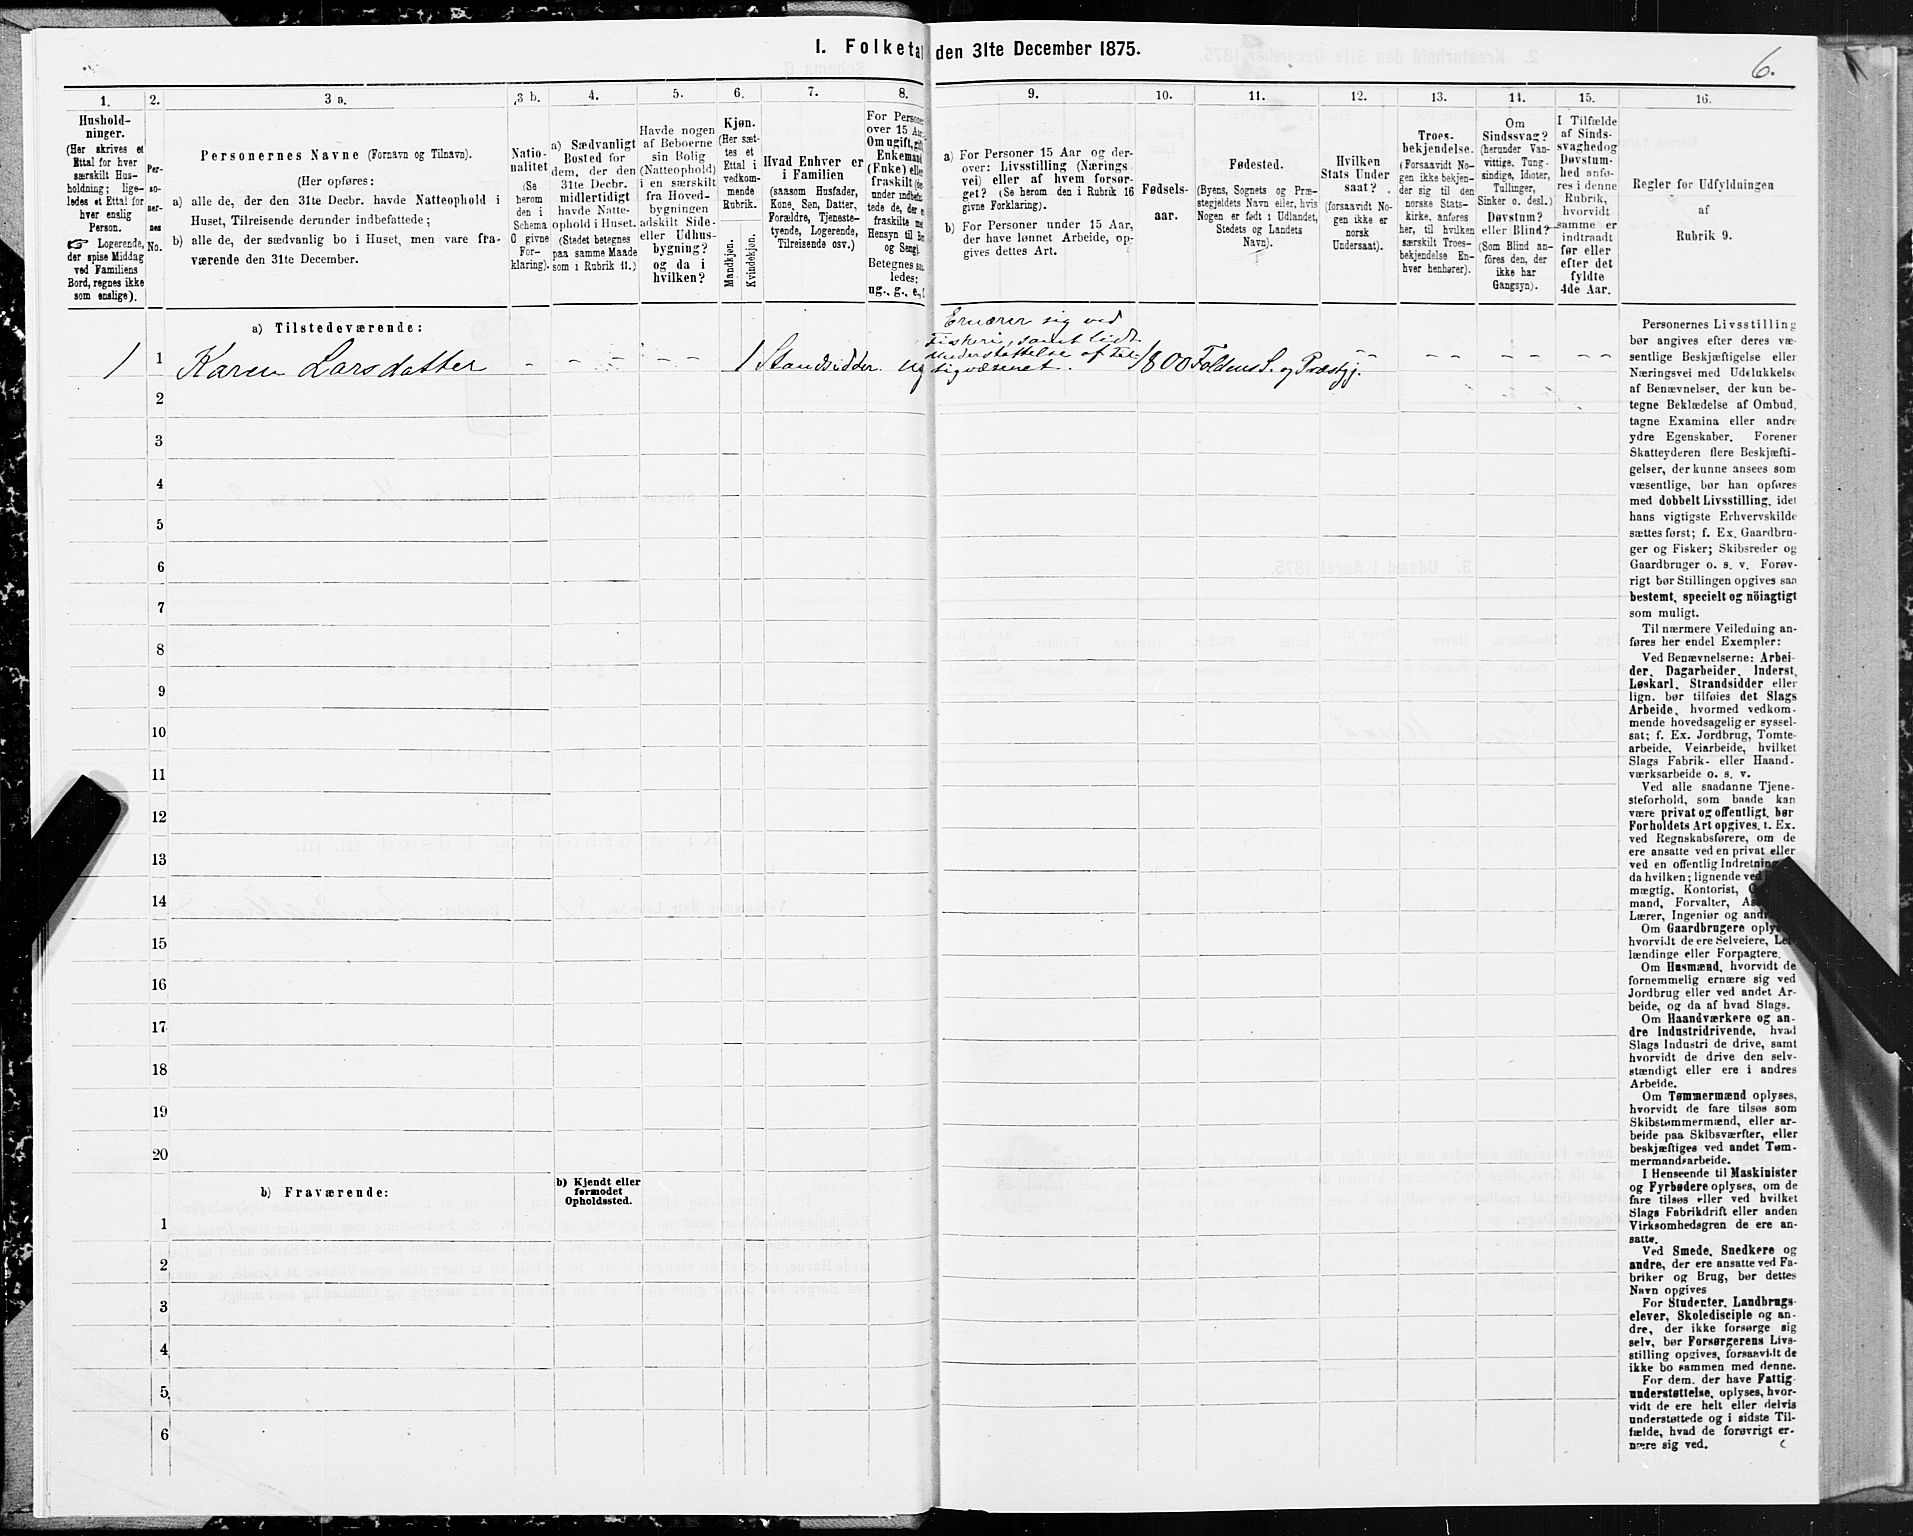 I. Folketal den 31te December 1875.
6.
1.
Hushold-
ninger.
(Her skrives et
Ettal for hver
særskilt Hus-
holdning; lige-
ledes et Ettal for
hver enslig
Person.
☞ Logerende,
der spise Middag
ved Familiens
Bord, regnes ikke
som enslige).
2.
Per-
so-
ner-
nes
No.
3 a.
Personernes Navne (Fornavn og Tilnavn).
(Her opføres:
a) alle de, der den 31te Decbr. havde Natteophold i
Huset, Tilreisende derunder indbefattede;
b) alle de, der sædvanlig bo i Huset, men vare fra-
værende den 31te December.
3 b.
Natio-
nalitet
(Se
herom
den i
Schema
O givne
For-
klaring).
4.
a) Sædvanligt
Bosted for
dem, der den
31te Decbr.
midlertidigt
havde Natte-
ophold i Huset.
(Stedet betegnes
paa samme Maade
som i Rubrik 11.)
5.
Havde nogen
af Beboerne
sin Bolig
(Natteophold)
i en særskilt
fra Hoved-
bygningen
adskilt Side-
eller Udhus-
bygning?
og da i
hvilken?
6.
Kjøn.
(Her sæt-
tes et
Ettal i
vedkom-
mende
Rubrik.
Mandkjøn.
Kvindekjøn.
7.
Hvad Enhver er
i Familien
(saasom Husfader,
Kone, Søn, Datter,
Forældre, Tjeneste-
tyende, Logerende,
Tilreisende osv.)
8.
For Personer
over 15 Aar
Om ugift, gift,
Enkemand
(Enke) eller
fraskilt (der-
under indbefat-
tede de, der er
fraskilte med
Hensyn til Bord
og Seng).
Betegnes saa-
ledes:
ug., g., e., f.
9.
a) For Personer 15 Aar og der-
over: Livsstilling (Nærings-
vei) eller af hvem forsør-
get? (Se herom den i Rubrik 16
givne Forklaring).
b) For Personer under 15 Aar,
der have lønnet Arbeide, op-
gives dettes Art.
10.
Fødsels-
aar.
11.
Fødested.
(Byens, Sognets og Præ-
stegjeldets Navn eller, hvis
Nogen er født i Udlandet,
Stedets og Landets
Navn).
12.
Hvilken
Stats Under
saat?
(forsaavidt No-
gen ikke er
norsk
Undersaat).
13.
Troes-
bekjendelse.
(Forsaavidt No-
gen ikke bekjen-
der sig til den
norske Stats-
kirke, anføres
her, til hvilken
særskilt Troes-
bekjendelse En-
hver henhører).
14.
Om
Sindssvag?
(herunder Van-
vittige, Tung-
sindige, Idioter,
Tullinger,
Sinker o. desl.)
Døvstum?
eller Blind?
(Som Blind an-
føres den, der
ikke har
Gangsyn).
15.
I Tilfælde
af Sinds-
svaghedog
Døvstum-
hed anfø-
res i denne
Rubrik,
hvorvidt
samme er
indtraadt
før eller
efter det
fyldte
4de Aar.
16.
Regler for Udfyldningen
af
Rubrik 9.
a) Tilstedeværende:
1 1 Karen Larsdatter - - - - 1 Standsidder ug
Ernærer sig ved
Fiskeri, samt lidt
Understøttelse af Fat-
tigvæsenet.
1800 Foldens S. og Præstgj.
2
3
4
5
6
7
8
9
10
11
12
13
14
15
16
17
18
19
20
b) Fraværende:
b) Kjendt eller
formodet
Opholdssted.
1
2
3
4
5
6
Personernes Livsstilling
bør angives efter deres væ-
sentlige Beskjæftigelse eller
Næringsvei med Udelukkelse
af Benævnelser, der kun be-
tegne Beklædelse af Ombud,
tagne Examina eller andre
ydre Egenskaber. Forener
Skatteyderen flere Beskjæfti-
gelser, der kunne ansees som
væsentlige, bør han opføres
med dobbelt Livsstilling, idet
hans vigtigste Erhvervskilde
sættes først; f. Ex. Gaardbru-
ger og Fisker; Skibsreder og
Gaardbruger o. s. v. Forøv-
rigt bør Stillingen opgives saa
bestemt, specielt og nöiagtigt
som muligt.
Til nærmere Veiledning an-
føres her endel Exempler:
Ved Benævnelserne: Arbei-
der, Dagarbeider, Inderst,
Løskarl, Strandsidder eller
lign. bør tilføies det Slags
Arbeide, hvormed vedkom-
mende hovedsagelig er syssel-
sat; f. Ex. Jordbrug, Tomte-
arbeide, Veiarbeide, hvilket
Slags Fabrik- eller Haand-
værksarbeide o. s. v.
Ved alle saadanne Tjene-
steforhold, som baade kan
være privat og offentligt, bør
Forholdets Art opgives, t. Ex.
ved Regnskabsførere, om de
ere ansatte ved en privat eller
ved en offentlig Indretning
da hvilken; lignende ved
mægtig, Kontorist,
mand, Forvalter,
Lærer, Ingeniør og
Om Gaardbrugere
hvorvidt de ere Selveiere,
lændinge eller Forpagtere.
Om Husmænd, hvorvidt de
fornemmelig ernære sig ved
Jordbrug eller ved andet Ar-
beide, og da af hvad Slags.
Om Haandværkere og an-
dre Industridrivende, hvad
Slags Industri de drive, samt
hvorvidt de drive den selv-
stændigt eller ere i andres
Arbeide.
Om Tømmermænd oplyses,
hvorvidt de fare tilsøs som
Skibstømmermænd, eller ar-
beide paa Skibsværfter, eller
beskjæftiges ved andet Tøm-
mermandsarbeide.
I Henseende til Maskinister
og Fyrbødere oplyses, om de
fare tilsøs eller ved hvilket
Slags Fabrikdrift eller anden
Virksomhedsgren de ere an-
satte.
Ved Smede, Snedkere og
andre, der ere ansatte ved Fa-
briker og Brug, bør dettes
Navn opgives
For Studenter, Landbrugs-
elever, Skoledisciple og an-
dre, der ikke forsørge sig
selv, bør Forsørgerens Livs-
stilling opgives, forsaavidt de
ikke bo sammen med denne.
For dem, der have Fattig-
understøttelse, oplyses, hvor-
vidt de ere helt eller delvis
understøttede og i sidste Til-
fælde, hvad de forøvrigt er-
nære sig ved.